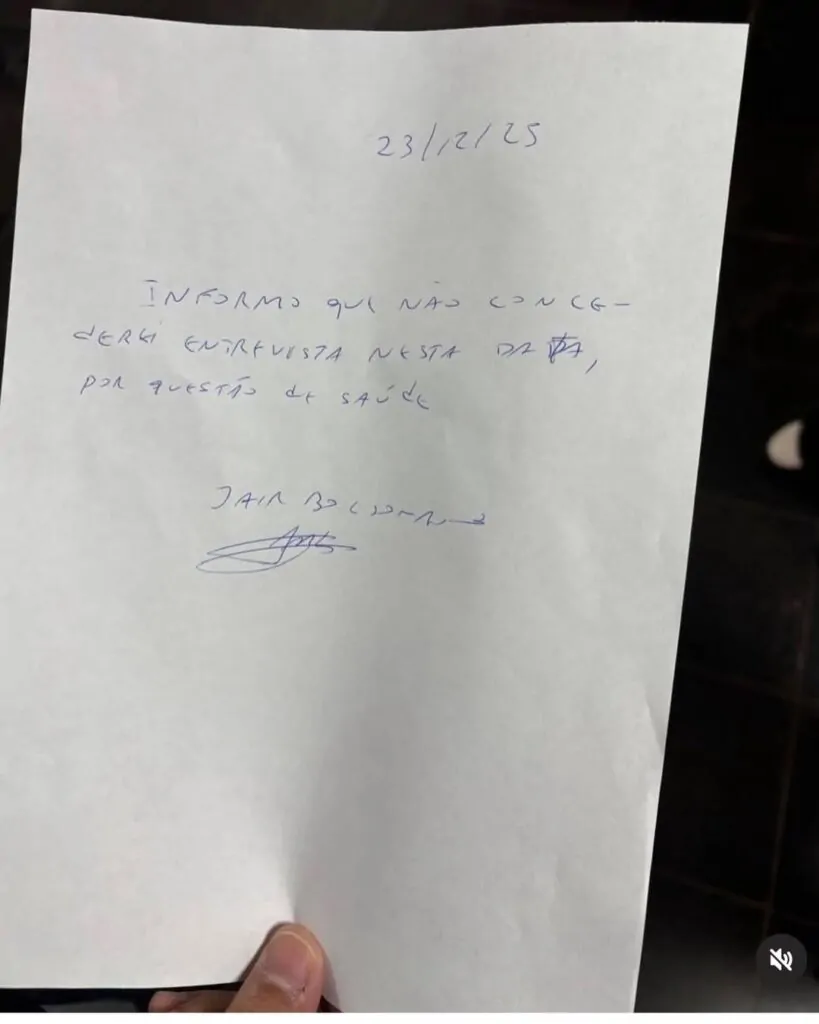 23/12/25
INFORMO QUE NÃO CONCE-
dEREI ENTREVISTA NESTA DATA,
POR QUESTÃO dE SAÚdE
JAIR BOLSONARO